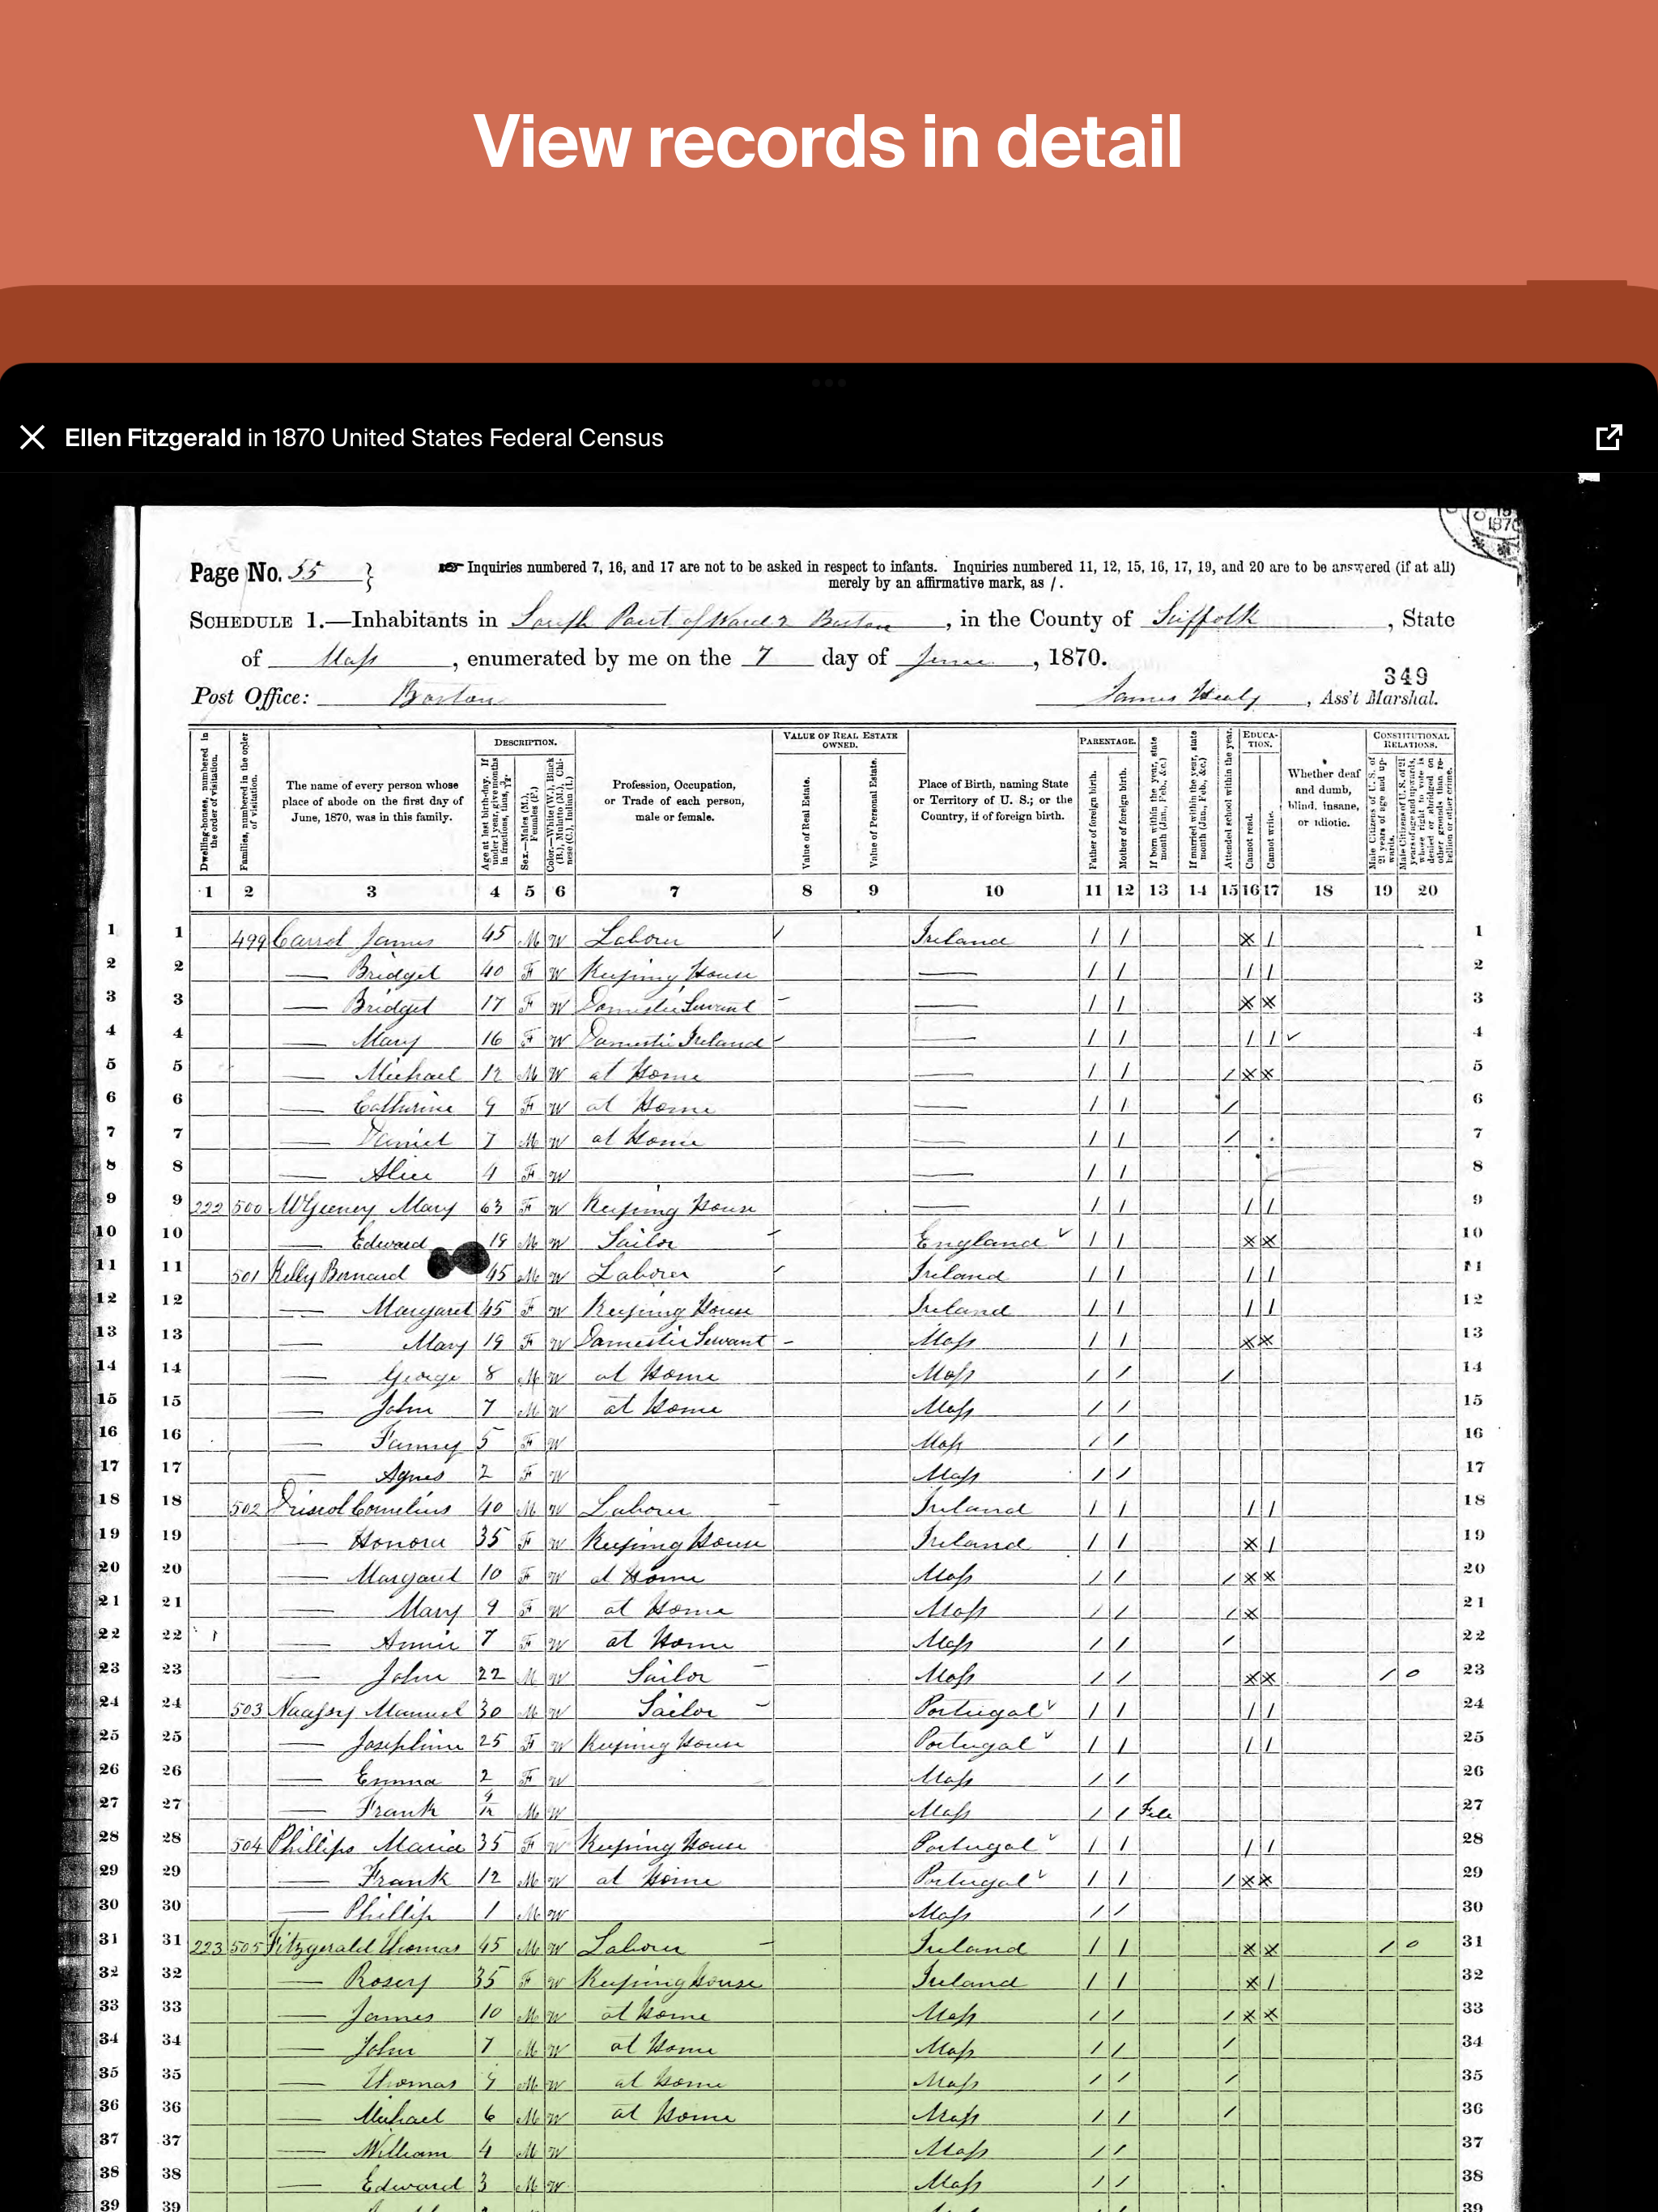 View records in detail
Ellen Fitzgerald in 1870 United States Federal Census
1870
Page No. 55
Inquiries numbered 7, 16, and 17 are not to be asked in respect to infants. Inquiries numbered 11, 12, 15, 16, 17, 19, and 20 are to be answered (if at all)
merely by an affirmative mark, as /.
SCHEDULE 1.—Inhabitants in South Part of Ward 2 Boston, in the County of Suffolk, State
of Mass, enumerated by me on the 7 day of June, 1870.
349
Post Office: Boston James Healy, Ass't Marshal.
Dwelling-houses, numbered in the order of visitation.
Families, numbered in the order of visitation.
The name of every person whose place of abode on the first day of June, 1870, was in this family.
DESCRIPTION.
Age at last birth-day. If under 1 year, give months in fractions, thus, 3/12
Sex.—Males (M.), Females (F.)
Color.—White (W.), Black (B.), Mulatto (M.), Chinese (C.), Indian (I.)
Profession, Occupation, or Trade of each person, male or female.
VALUE OF REAL ESTATE OWNED.
Value of Real Estate.
Value of Personal Estate.
Place of Birth, naming State or Territory of U. S.; or the Country, if of foreign birth.
PARENTAGE.
Father of foreign birth.
Mother of foreign birth.
If born within the year, state month (Jan., Feb., &c.)
If married within the year, state month (Jan., Feb., &c.)
Attended school within the year.
EDUCATION.
Cannot read.
Cannot write.
Whether deaf and dumb, blind, insane, or idiotic.
CONSTITUTIONAL RELATIONS.
Male Citizens of U. S. of 21 years of age and upwards.
Male Citizens of U. S. of 21 years of age and upwards, whose right to vote is denied or abridged on other grounds than rebellion or other crime.
1 2 3 4 5 6 7 8 9 10 11 12 13 14 15 16 17 18 19 20
1 1 499 Carrol James 45 M W Laborer Ireland / / x / 1
2 2 — Bridget 40 F W Keeping House — / / / / 2
3 3 — Bridget 17 F W Domestic Servant — / / x x 3
4 4 — Mary 16 F W Domestic Ireland — / / / / 4
5 5 — Michael 12 M W at Home — / / / x x 5
6 6 — Catherine 9 F W at Home — / / / 6
7 7 — Daniel 7 M W at Home — / / / 7
8 8 — Alice 4 F W — / / 8
9 9 222 500 McGeeney Mary 63 F W Keeping House — / / / / 9
10 10 — Edward 19 M W Sailor England / / x x 10
11 11 501 Kelly Bernard 45 M W Laborer Ireland / / / / 11
12 12 — Margaret 45 F W Keeping House Ireland / / / / 12
13 13 — Mary 19 F W Domestic Servant Mass / / x x 13
14 14 — George 8 M W at Home Mass / / / 14
15 15 — John 7 M W at Home Mass / / 15
16 16 — Fanny 5 F W Mass / / 16
17 17 — Agnes 2 F W Mass / / 17
18 18 502 Driscol Cornelius 40 M W Laborer Ireland / / / / 18
19 19 — Honora 35 F W Keeping House Ireland / / x / 19
20 20 — Margaret 10 F W at Home Mass / / / x x 20
21 21 — Mary 9 F W at Home Mass / / / x 21
22 22 — Annie 7 F W at Home Mass / / / 22
23 23 — John 22 M W Sailor Mass / / x x / 0 23
24 24 503 Manuel 30 M W Sailor Portugal / / / / 24
25 25 — Josephine 25 F W Keeping House Portugal / / / / 25
26 26 — Emma 2 F W Mass / / 26
27 27 — Frank M W Mass / / 27
28 28 504 Phillips Maria 35 F W Keeping House Portugal / / / / 28
29 29 — Frank 12 M W at Home Portugal / / / x x 29
30 30 — Phillip 1 M W Mass / / 30
31 31 223 505 Fitzgerald Thomas 45 M W Laborer Ireland / / x x / 0 31
32 32 — Rosery 35 F W Keeping House Ireland / / x / 32
33 33 — James 10 M W at Home Mass / / / x x 33
34 34 — John 7 M W at Home Mass / / / 34
35 35 — Thomas M W at Home Mass / / / 35
36 36 — Michael 6 M W at Home Mass / / / 36
37 37 — William 4 M W Mass / / 37
38 38 — Edward 3 M W Mass / / 38
39 39 39